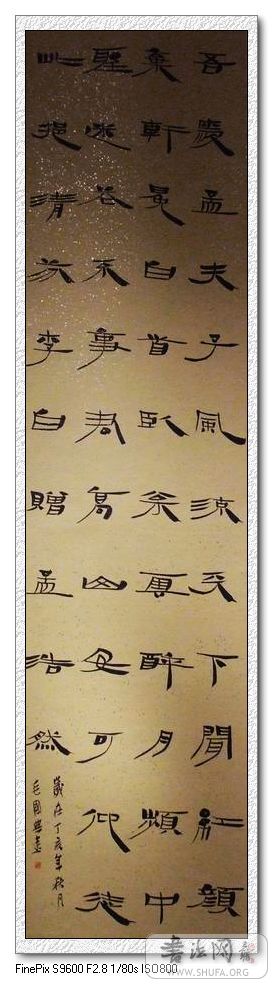 吾愛孟夫子風流天下聞紅顏
棄軒冕白首臥松雲醉月頻中
聖迷花不事君高山安可仰徒
此挹清芬李白贈孟浩然
歲在丁亥年秋月
毛國典書
FinePix S9600 F2.8 1/80s ISO800
书法网
WWW.SHUFA.ORG